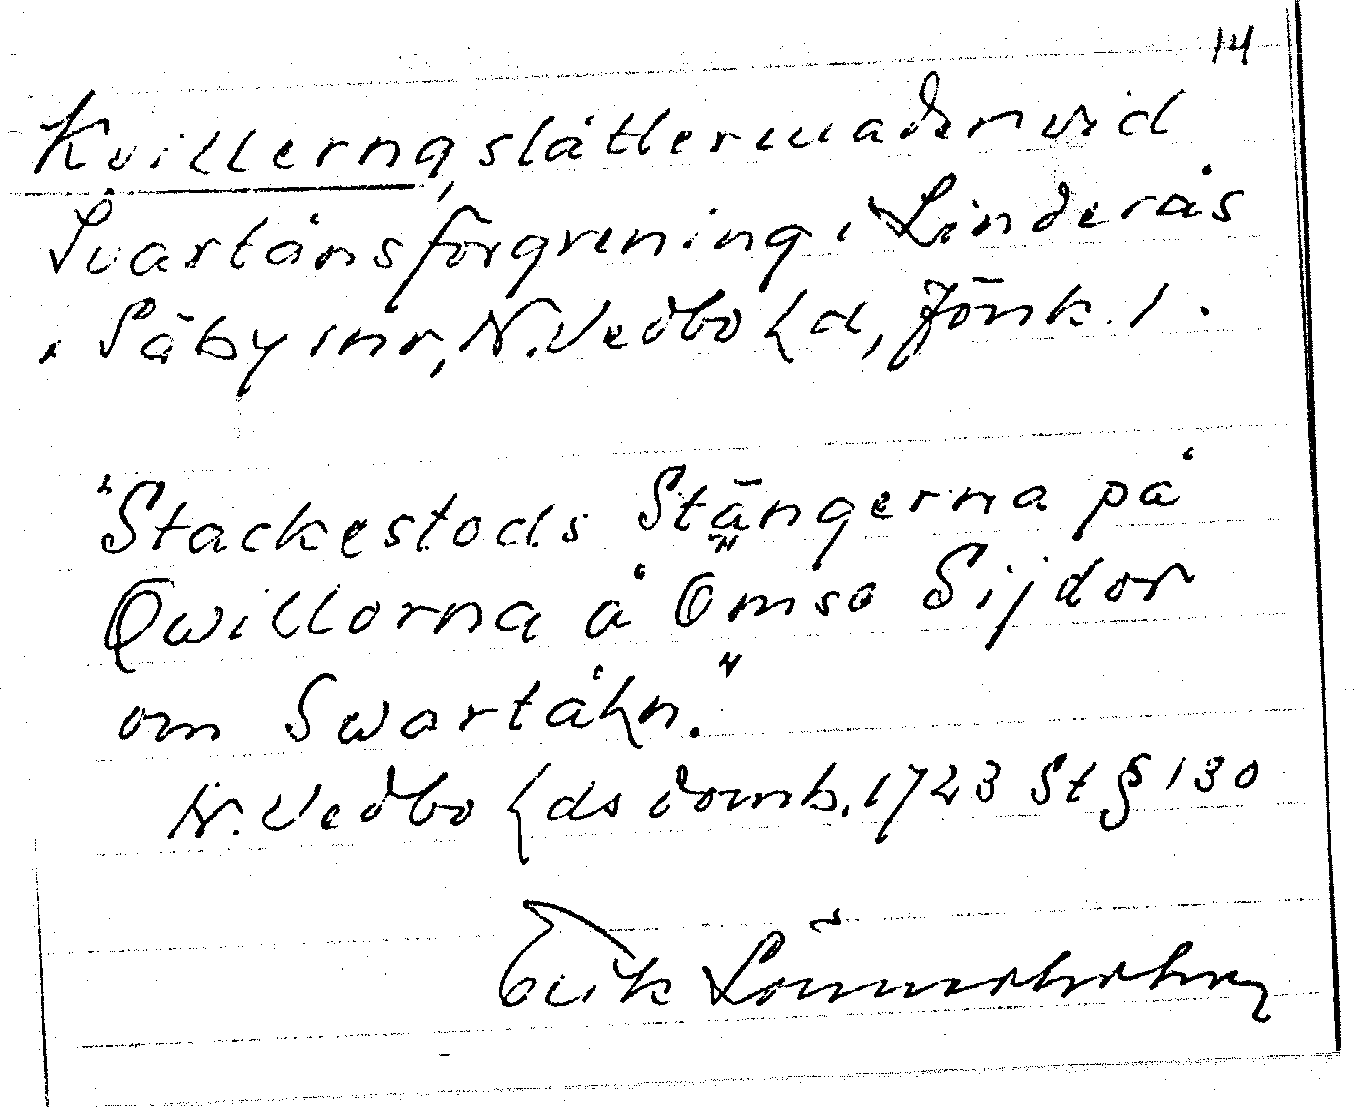 14
Kvillerna, slåttermaden vid
Svartåns förgrening i Linderås
i Säby snr, N. Vedbo hd, Jönk. l.
"Stackestods Stängerna på
Qwillorna å ömso Sijdor
om Swartåhn."
N. Vedbo hds domb. 1723 St § 130
Erik